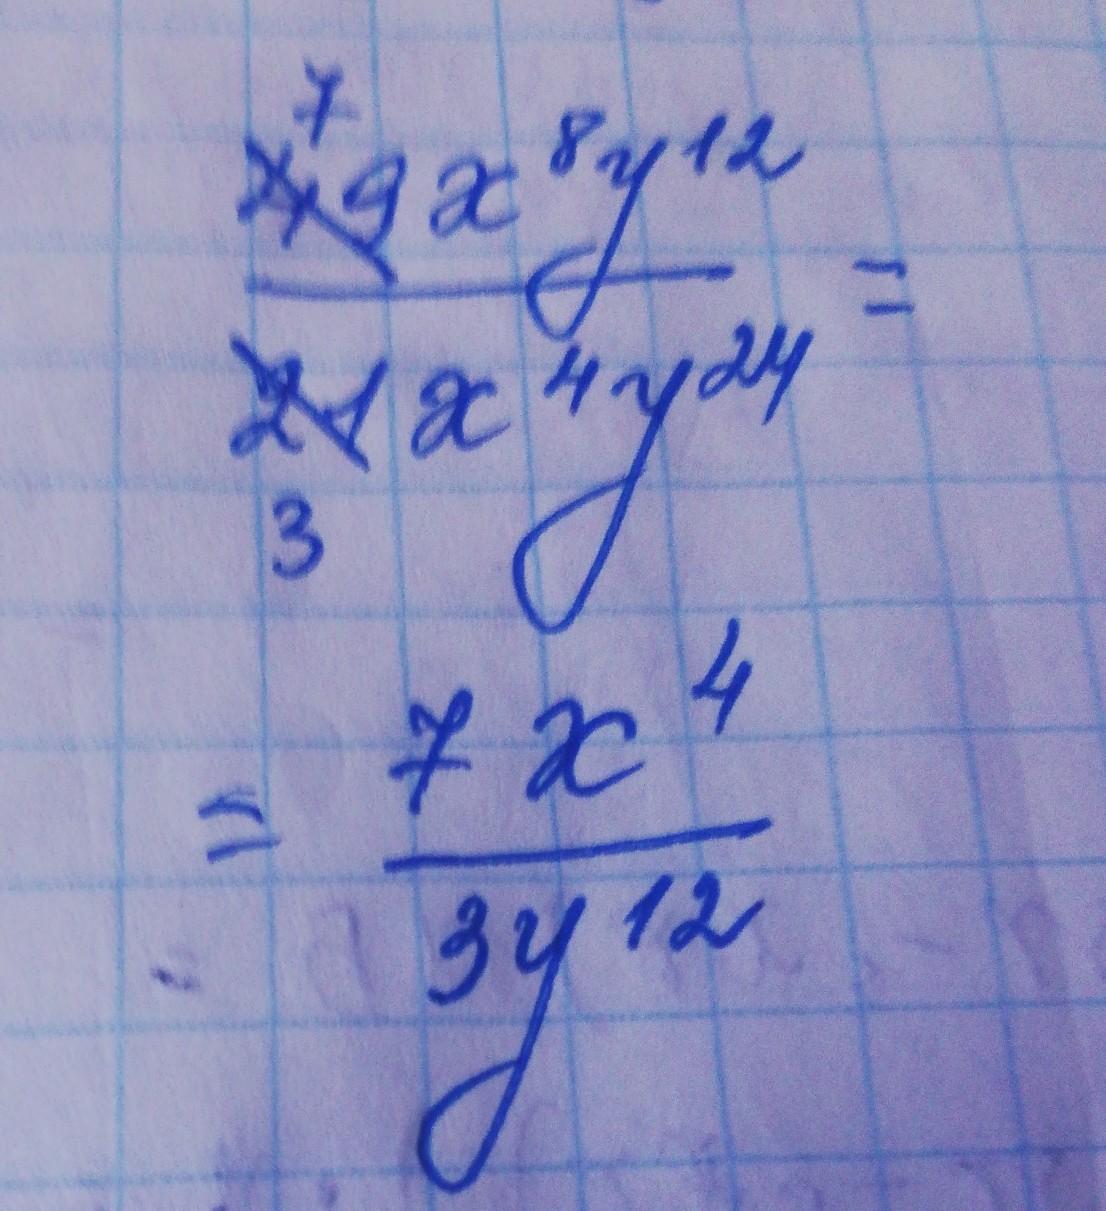 7
49x⁸y¹²
=
21x⁴y²⁴
3
7x⁴
=
3y¹²